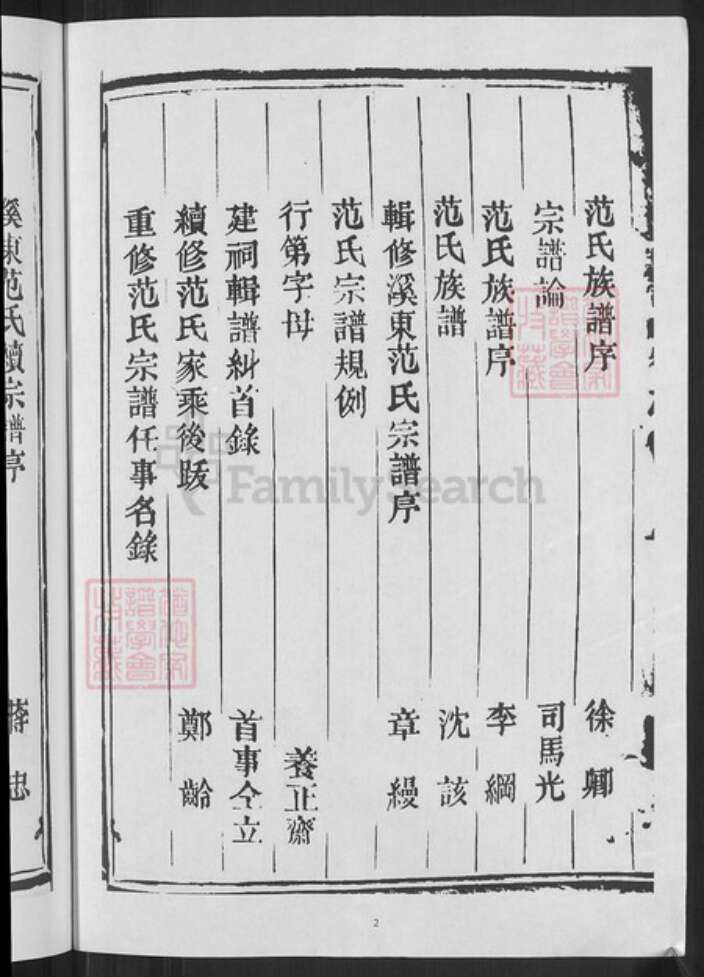 范氏族譜序 徐卿
宗譜論 司馬光
范氏族譜序 李綱
范氏族譜 沈該
輯修溪東范氏宗譜序 章縵
范氏宗譜規例
行第字母 養正齋
建祠輯譜糾首錄 首事仝立
續修范氏家乘後跋 鄭齡
重修范氏宗譜任事名錄
2
溪東范氏續宗譜序 蔣忠
FamilySearch